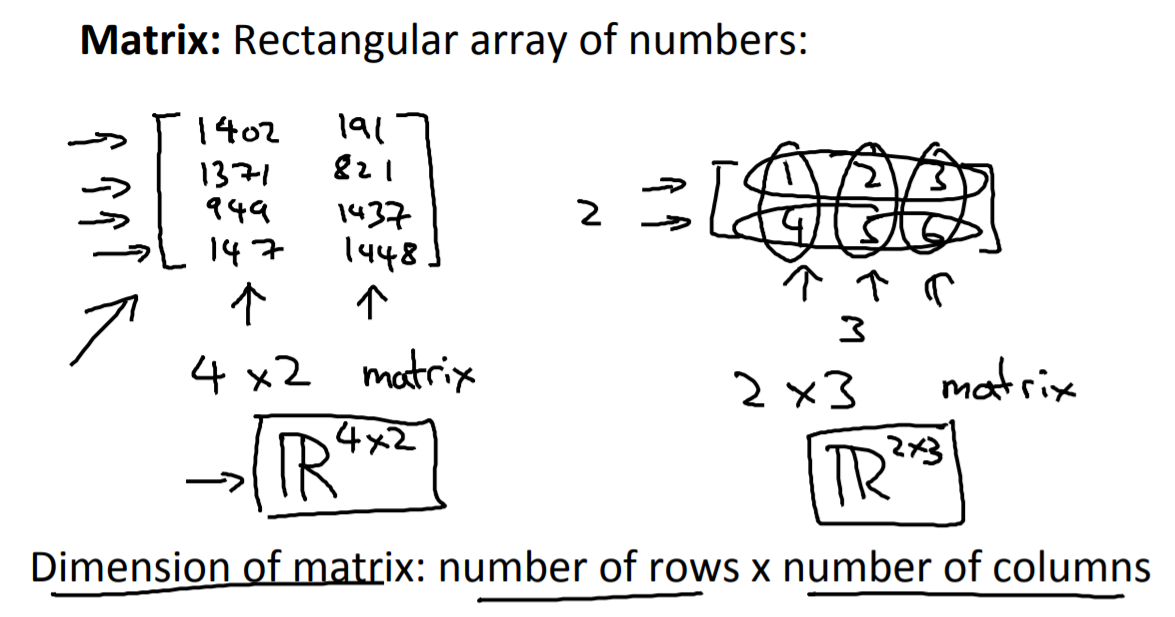 Matrix: Rectangular array of numbers:
1402 191
1371 821
949 1437
147 1448
4 x 2 matrix
ℝ 4x2
2
1 2 3
4 5 6
3
2 x 3 matrix
ℝ 2x3
Dimension of matrix: number of rows x number of columns